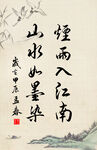 煙雨入江南
山水如墨染
歲在甲辰孟春